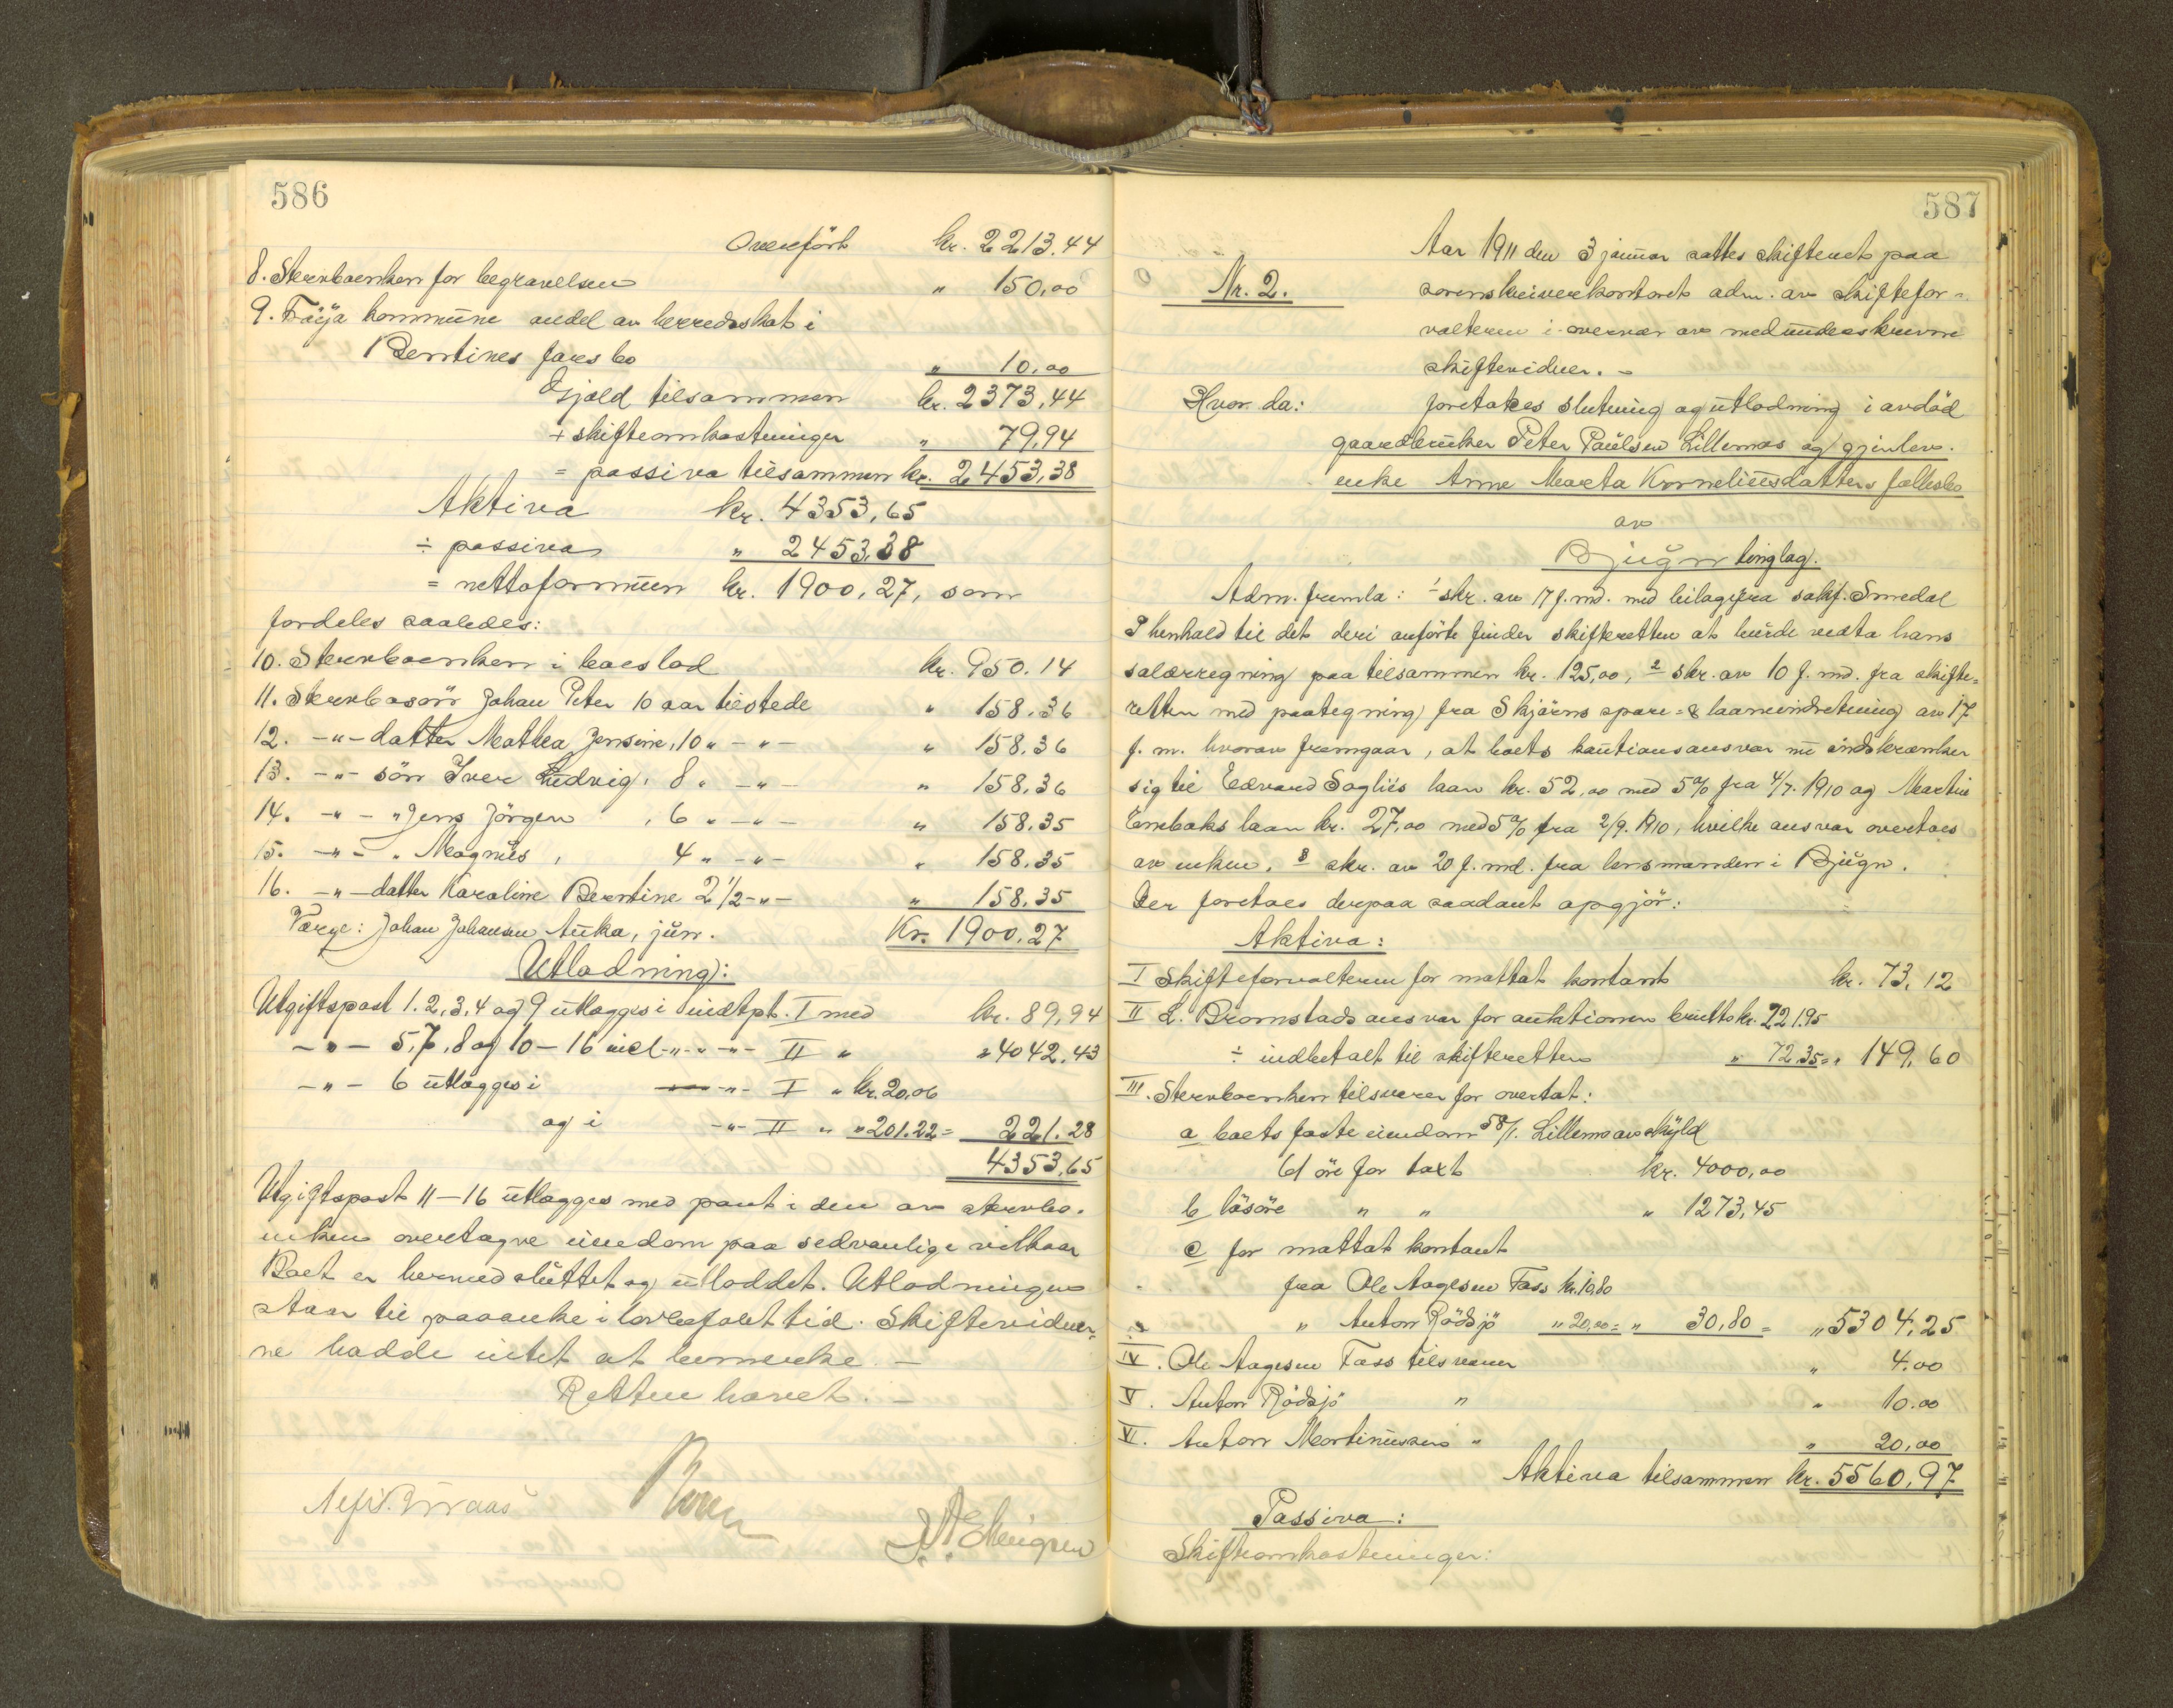 586
Overført kr. 2213.44
8. Stervboenken for begravelsen " 150,00
9. Frøya kommune andel av herredsskat i
Berntines farsbo " 10,00
Gjæld tilsammen kr. 2373,44
+ skifteomkostninger " 79,94
= passiva tilsammen kr. 2453,38
Aktiva kr. 4353,65
÷ passiva " 2453,38
= nettoformuen kr. 1900,27, som
fordeles saaledes:
10. Stervboenken i boeslod kr. 950.14
11. Stervbosön Johan Peter 10 aar tilstede " 158,36
12. -"- datter Mathea Jensine, 10 " -"- " 158,36
13. -"- sön Iver Ludvig, 8 " -"- " 158,36
14. -"- " Jens Jörgen, 6 " -"- " 158,35
15. -"- " Magnus, 4 " -"- " 158,35
16. -"- datter Karoline Berntine 2 1/2 -"- " 158,35
Værge: Johan Johansen Auka, jun. Kr. 1900,27
Utlodning:
Utgiftspost 1. 2, 3, 4 og 9 utlægges i indtpt. I med kr. 89,94
-"- 5, 7, 8 og 10-16 incl -"-"-"- II " " 4042,43
-"- 6 utlægges i -"- I " kr. 20,06
og i -"- II " " 201.22 = 221.28
4353,65
Utgiftspost 11-16 utlægges med pant i den av stervbo-
enken overtagne eiendom paa sedvanlige vilkaar
Boet er hermed sluttet og utloddet. Utlodningen
staar til paaanke i lovbefalet tid. Skiftevidner-
ne hadde intet at bemerke. -
Retten hævet. -
587
Nr. 2.
Aar 1911 den 3 januar sattes skifteret paa
sorenskriverkontoret adm. av skiftefor-
valteren i overvær av medunderskrevne
skiftevidner. -
Hvor da: foretakes slutning og utlodning i avdöd
gaardbruker Peter Paulsen Lillemos og gjenlev.
enke Anne Marta Korneliusdatters fællesbo
av
Bjugn tinglag.
Adm. fremla: 1 skr. av 17 f. md. med bilag fra sakf. Smedal
I henhold til det deri anförte finder skifteretten at burde vedta hans
salærregning paa tilsammen kr. 125,00, 2 skr. av 10 f. md. fra skifte-
retten med paategning fra Skjörns spare- & laaneindretning av 17
f. m. hvorav fremgaar, at boets kautionsansvar nu indskrænker
sig til Edvard Sagliés laan kr. 52,00 med 5% fra 4/7. 1910 og Martin
Ernebaks laan kr. 27,00 med 5% fra 2/9. 1910, hvilke ansvar overtaes
av enken. 3 skr. av 20 f. md. fra lensmanden i Bjugn.
Der foretaes derpaa saadant opgjör:
Aktiva:
I Skifteforvalteren for mottat kontant kr. 73,12
II L. Bromstads ansvar for auktionen brutto kr. 221.95
÷ indbetalt til skifteretten " 72.35 = " 149,60
III. Stervboenken tilsvarer for overtat:
a boets faste eiendom 58/1. Lillemo av skyld
61 öre for taxt kr. 4000,00
b lösöre " " " 1273,45
c for mottat kontant
fra Ole Aagesen Fass kr. 10,80
" Anton Rödsjö " 20,00 = " 30,80 = " 5304,25
IV. Ole Aagesen Fass tilsvarer " 4.00
V. Anton Rödsjö " " 10.00
VI. Anton Martinussen " " 20,00
Aktiva tilsammen kr. 5560,97
Passiva:
Skifteomkostninger: